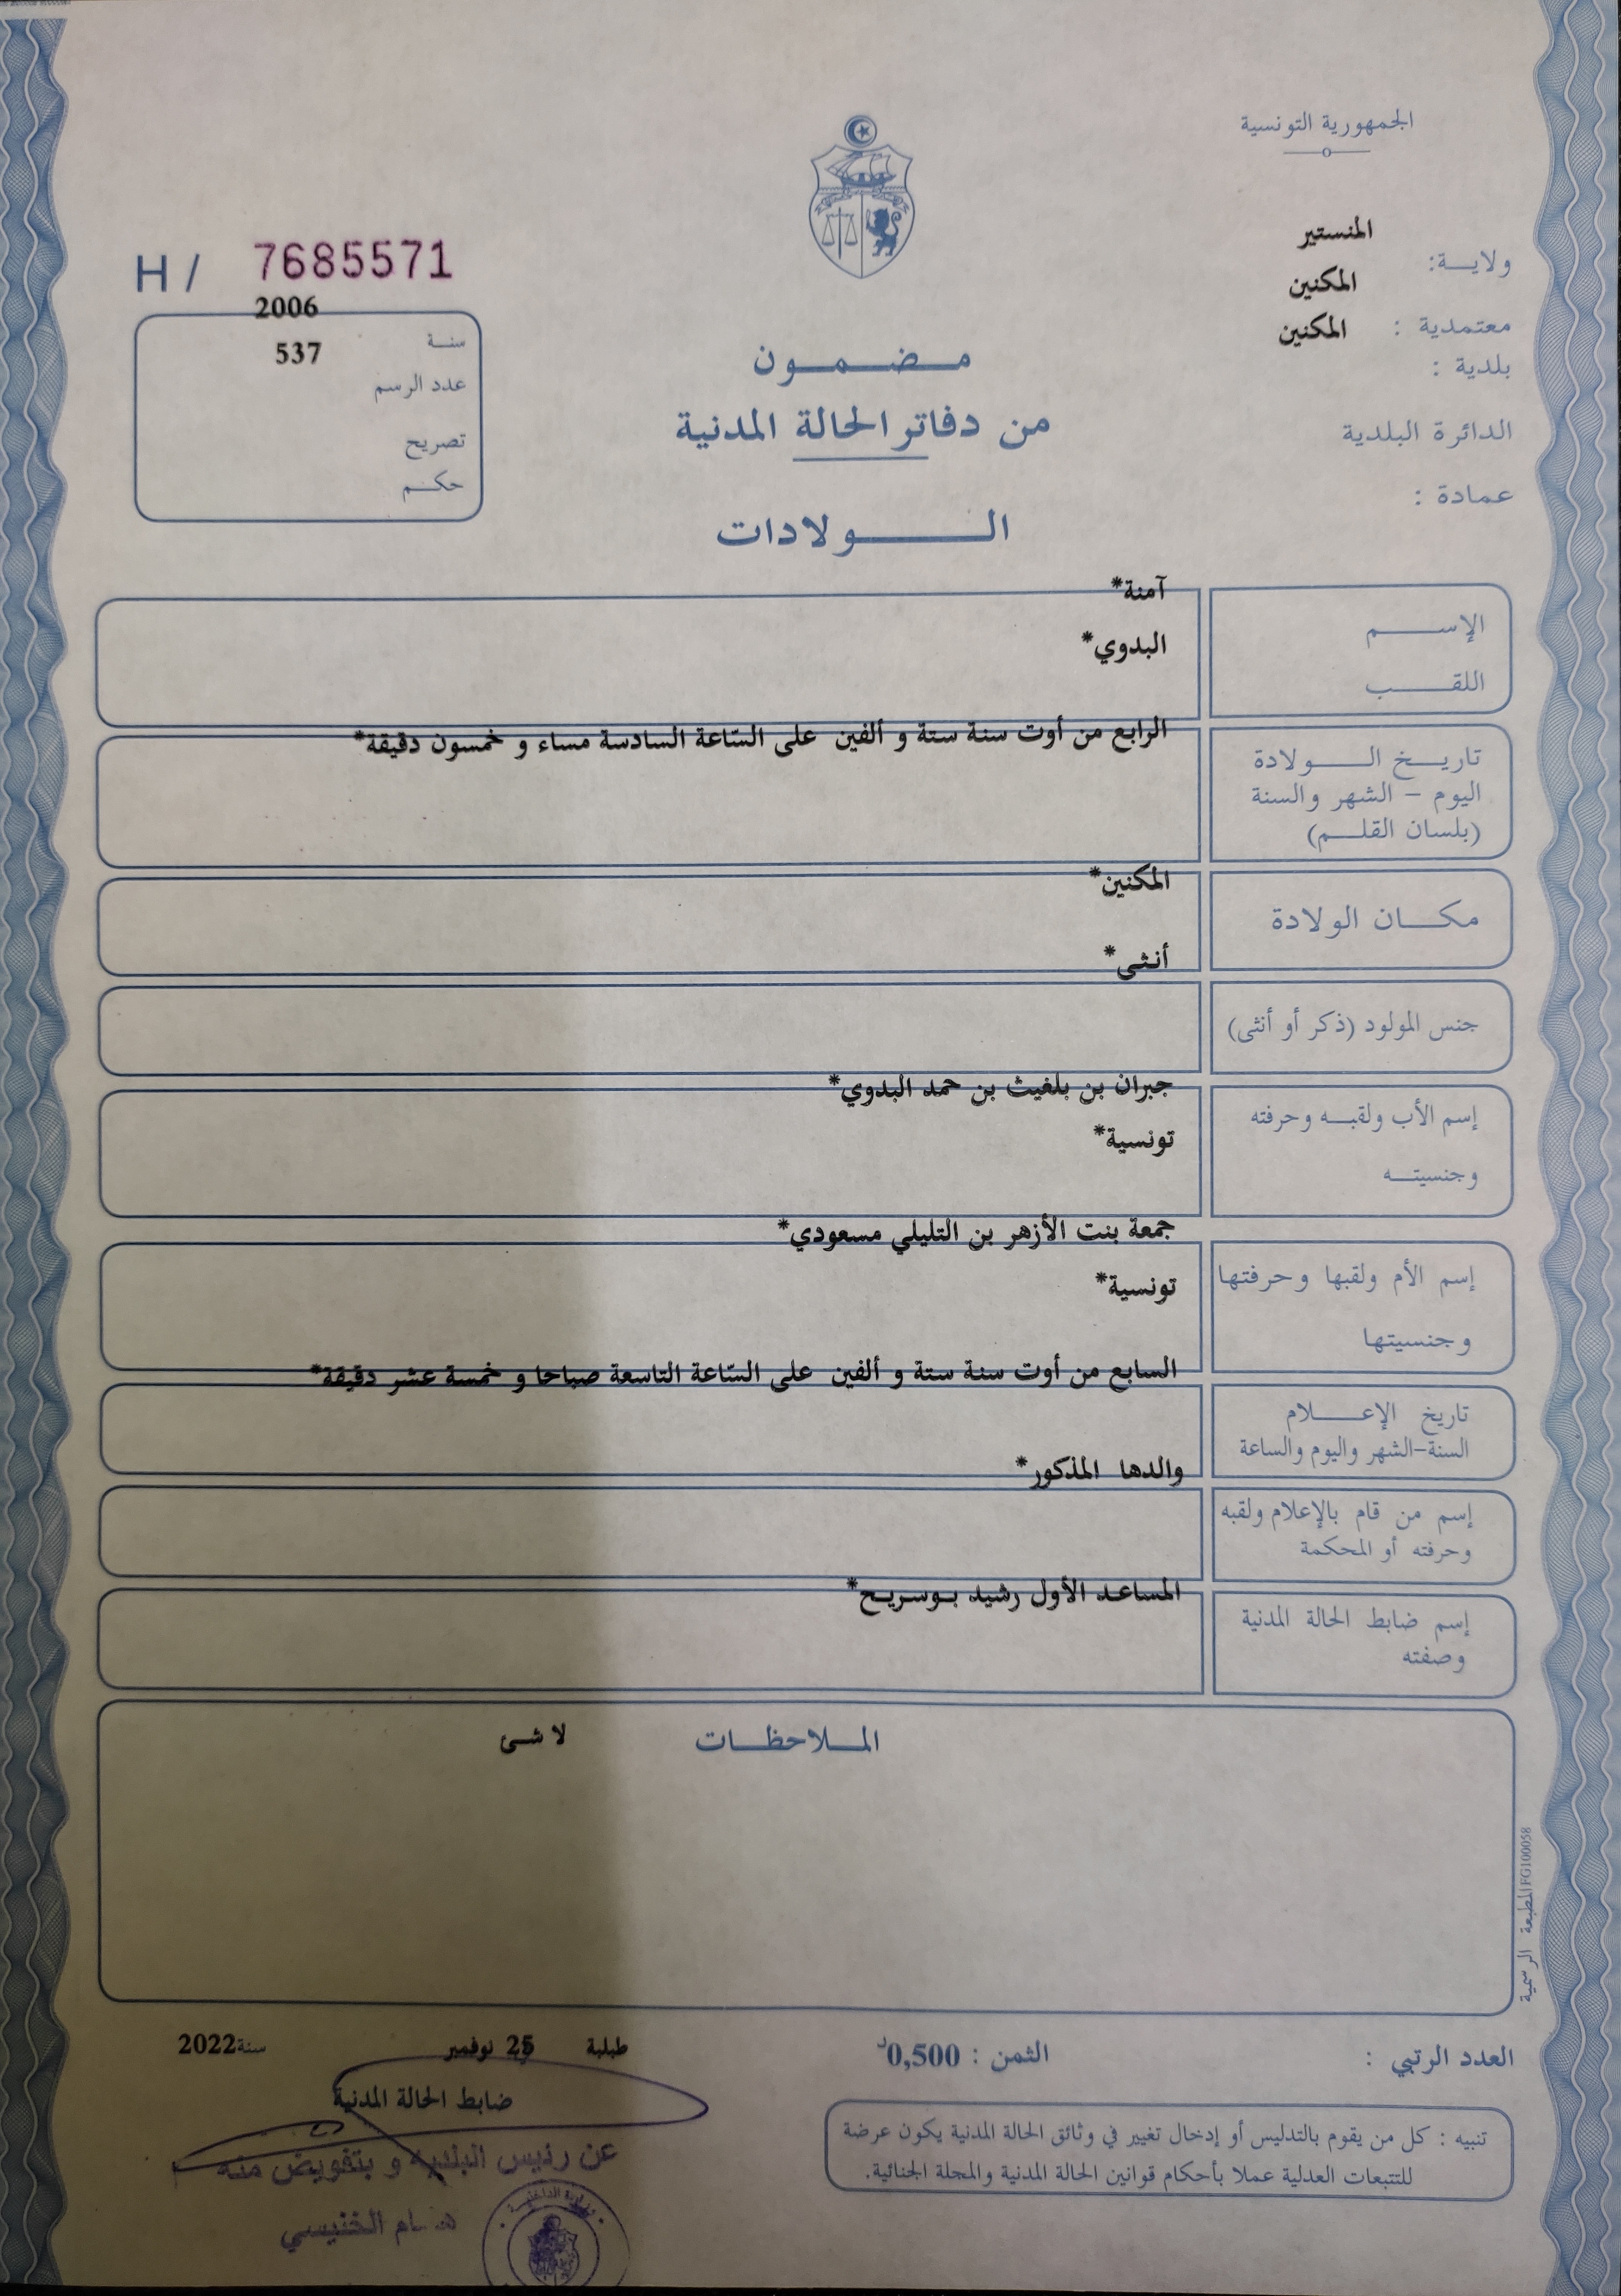 الجمهورية التونسية
المنستير
ولاية:
المكنين
معتمدية :
المكنين
بلدية :
الدائرة البلدية
عمادة :
H / 7685571
2006
سنة
537
عدد الرسم
تصريح
حكم
مضمون
من دفاتر الحالة المدنية
الولادات
آمنة*
الإسم
البدوي*
اللقب
الرابع من أوت سنة ستة و ألفين على السّاعة السادسة مساء و خمسون دقيقة*
تاريخ الولادة
اليوم - الشهر والسنة
(بلسان القلم)
المكنين*
مكان الولادة
أنثى*
جنس المولود (ذكر أو أنثى)
جبران بن بلغيث بن حمد البدوي*
إسم الأب ولقبه وحرفته
تونسية*
وجنسيته
جمعة بنت الأزهر بن التليلي مسعودي*
إسم الأم ولقبها وحرفتها
تونسية*
وجنسيتها
السابع من أوت سنة ستة و ألفين على السّاعة التاسعة صباحا و خمسة عشر دقيقة*
تاريخ الإعلام
السنة-الشهر واليوم والساعة
والدها المذكور*
إسم من قام بالإعلام ولقبه
وحرفته أو المحكمة
المساعد الأول رشيد بوسريح*
إسم ضابط الحالة المدنية
وصفته
الملاحظات لا شئ
المطبعة الرسمية FG100058
العدد الرتبي :
الثمن : 0,500د
طبلبة 25 نوفمبر سنة 2022
ضابط الحالة المدنية
تنبيه : كل من يقوم بالتدليس أو إدخال تغيير في وثائق الحالة المدنية يكون عرضة
للتتبعات العدلية عملا بأحكام قوانين الحالة المدنية والمجلة الجنائية.
عن رئيس البلدية و بتفويض منه
الخنيسي
وزارة الداخلية